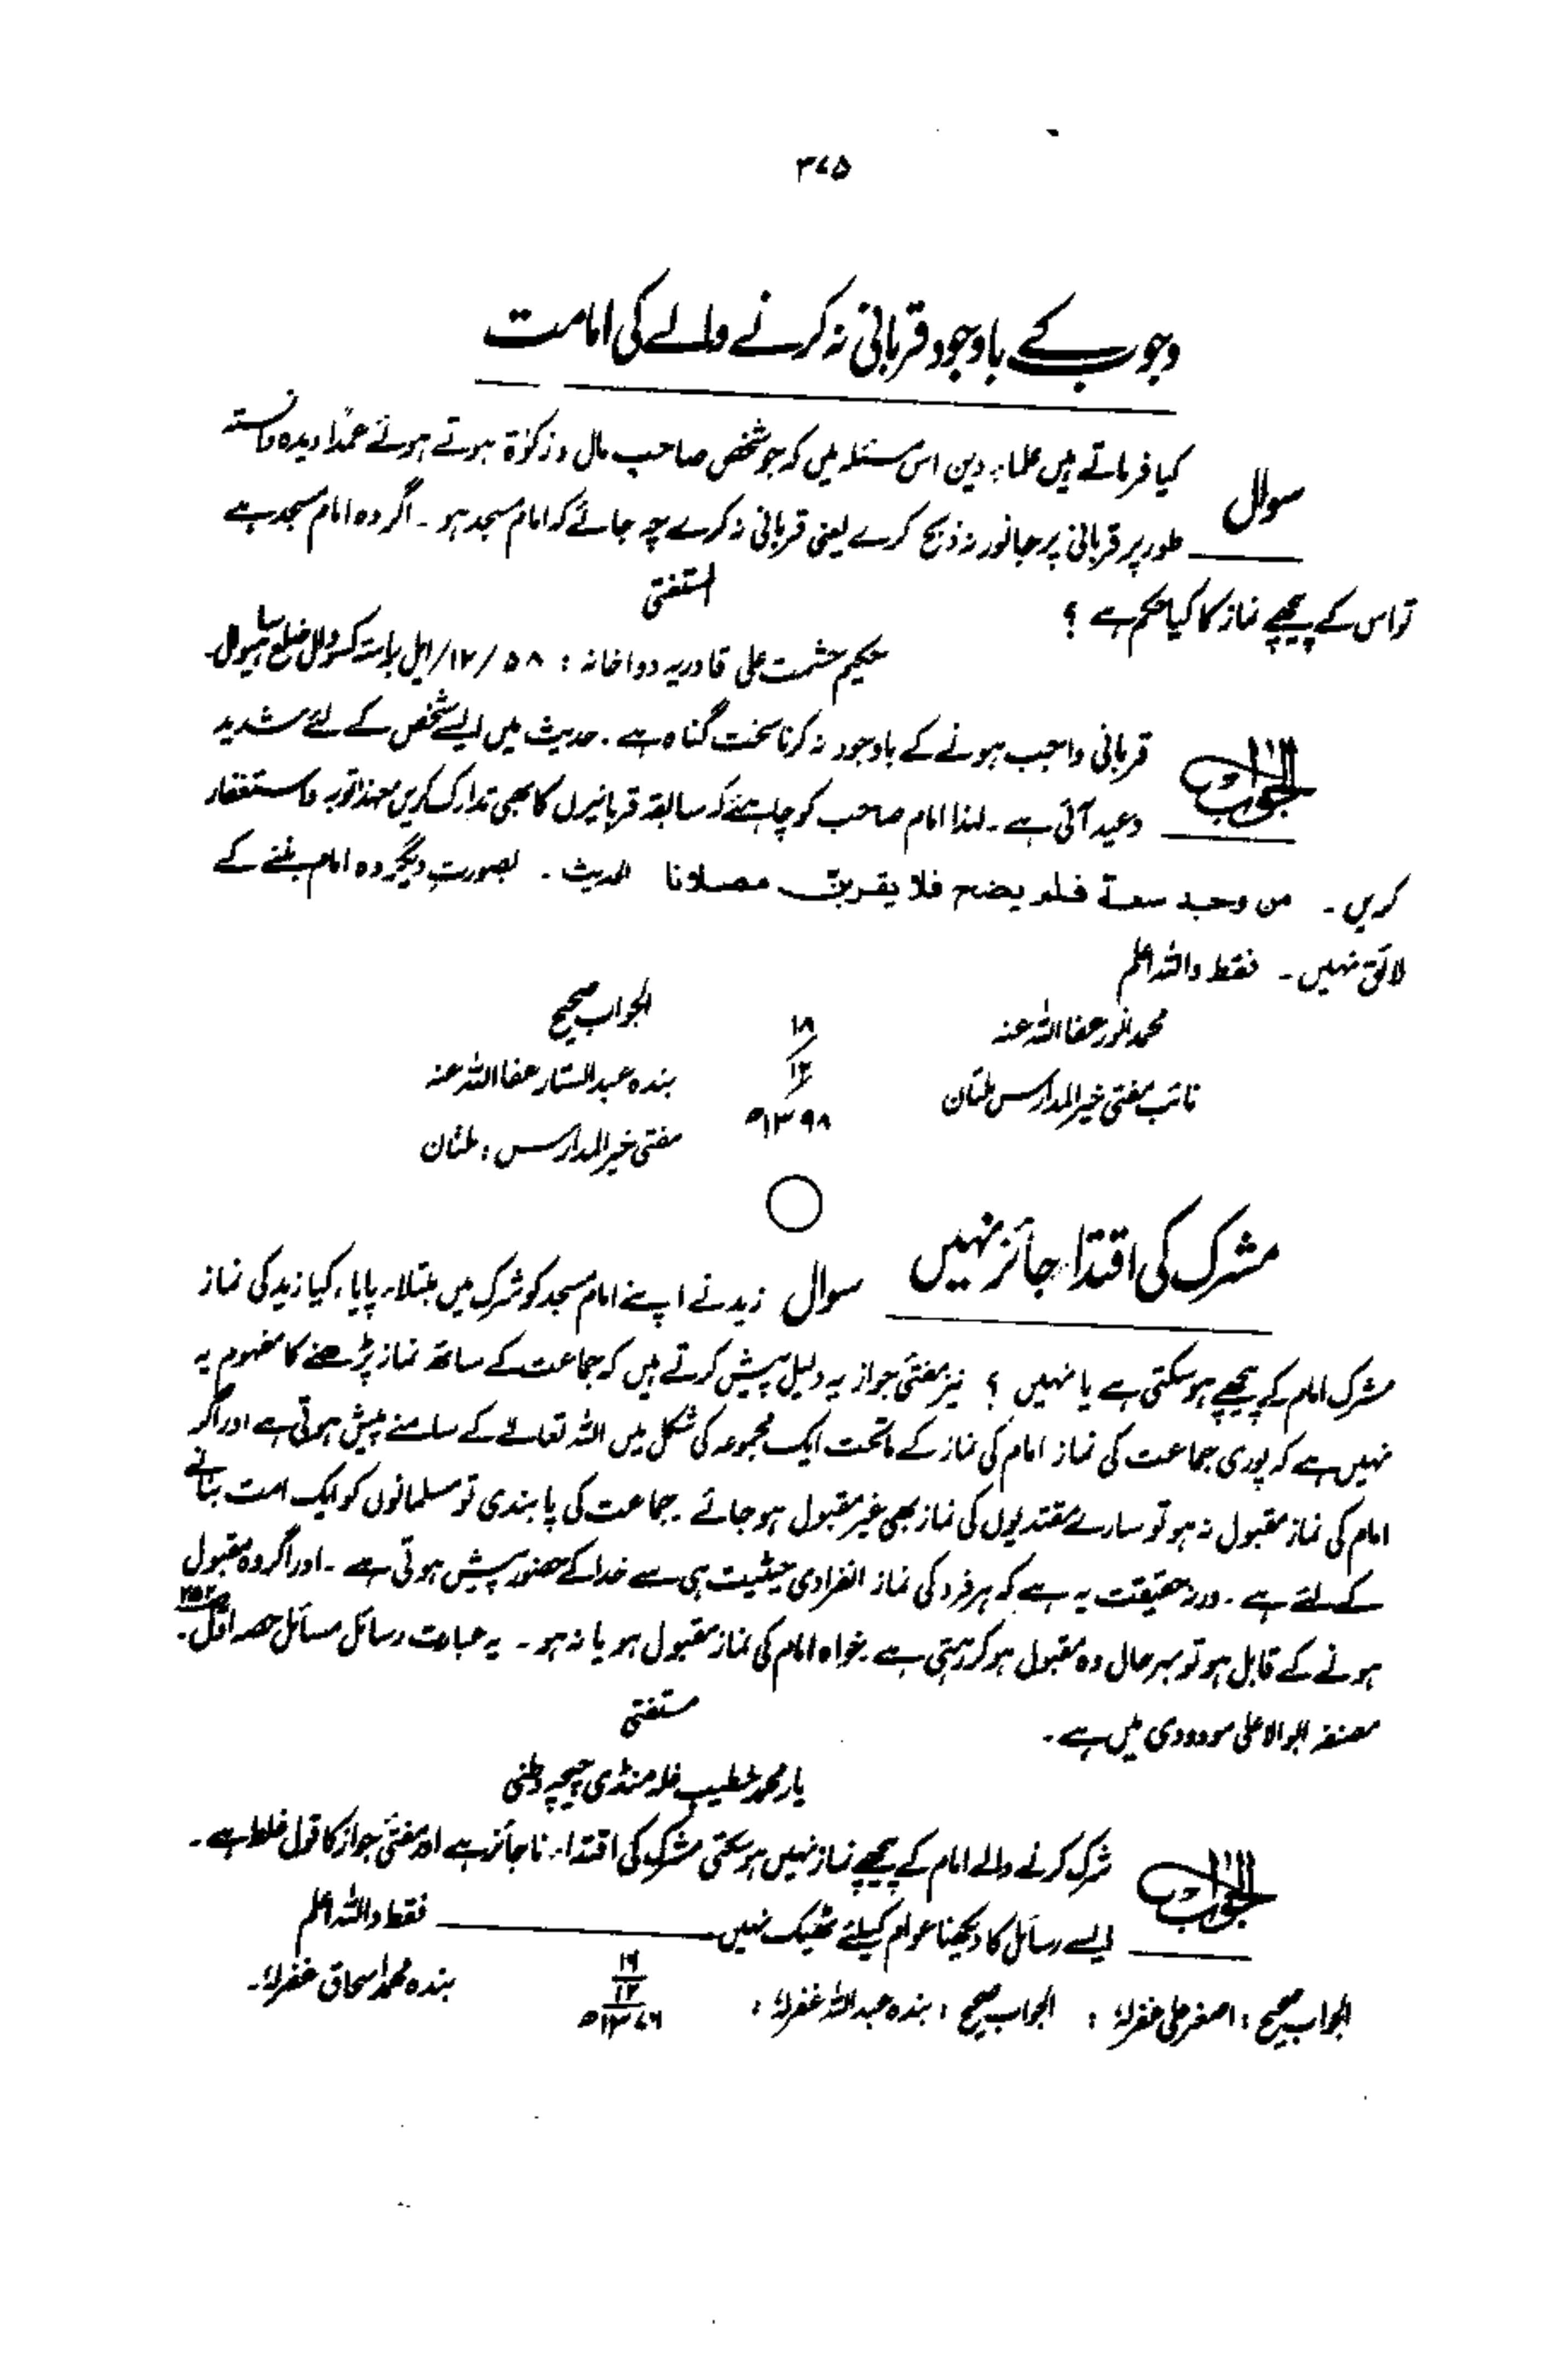 ۳۷۵
وجوب کے باوجود قربانی نہ کرنے والے کی امامت
سوال کیا فرماتے ہیں علماء دین اس مسئلہ میں کہ جو شخص صاحب مال و زکوٰۃ ہوتے ہوئے عمداً دیدہ دانستہ
طور پر قربانی پر جانور نہ ذبح کرے یعنی قربانی نہ کرے چہ جائے کہ امام مسجد ہو ۔ اگر وہ امام مسجد ہے
تو اس کے پیچھے نماز کا کیا حکم ہے ؟
المستفتی
حکیم حشمت علی قادریہ دواخانہ : ۵۸ /۱۲/ ایل براستہ کسووال ضلع ساہیوال۔
الجواب قربانی واجب ہونے کے باوجود نہ کرنا سخت گناہ ہے ۔ حدیث میں ایسے شخص کے لئے شدید
وعید آئی ہے ۔ لہٰذا امام صاحب کو چاہئے کہ سابقہ قربانیوں کا بھی تدارک کریں مہذا توبہ و استغفار
کریں ۔ من وجد سعة فلم يضح فلا يقربن مصلانا الحدیث ۔ بصورتِ دیگر وہ امام بننے کے
لائق نہیں ۔ فقط واللہ اعلم
محمد انور عفا اللہ عنہ
نائب مفتی خیر المدارس ملتان
۱۸
۱۲
۱۳۹۸ھ
الجواب صحیح
بندہ عبد الستار عفا اللہ عنہ
مفتی خیر المدارس : ملتان
مشرک کی اقتداء جائز نہیں
سوال زید نے اپنے امام مسجد کو شرک میں مبتلاء پایا، کیا زید کی نماز
مشرک امام کے پیچھے ہو سکتی ہے یا نہیں ؟ نیز مفتئ جواز یہ دلیل پیش کرتے ہیں کہ جماعت کے ساتھ نماز پڑھنے کا مفہوم یہ
نہیں ہے کہ پوری جماعت کی نماز امام کی نماز کے ماتحت ایک مجموعہ کی شکل میں اللہ تعالےٰ کے سامنے پیش ہوتی ہے اور اگر
امام کی نماز مقبول نہ ہو تو سارے مقتدیوں کی نماز بھی غیر مقبول ہو جائے ۔ جماعت کی پابندی تو مسلمانوں کو ایک امت بنانے
کے لئے ہے ۔ ورد حقیقت یہ ہے کہ ہر فرد کی نماز انفرادی حیثیت ہی سے خدا کے حضور پیش ہوتی ہے ۔ اور اگر وہ مقبول
ہونے کے قابل ہو تو بہرحال وہ مقبول ہو کر رہتی ہے خواہ امام کی نماز مقبول ہو یا نہ ہو ۔ یہ عبارت رسائل مسائل حصہ اول۔
مصنفہ ابوالاعلی مودودی میں ہے ۔
مستفتی
یار محمد خطیب غلہ منڈی چیچہ وطنی
الجواب شرک کرنے والے امام کے پیچھے نماز نہیں ہو سکتی مشرک کی اقتداء ناجائز ہے اور مفتئ جواز کا قول غلط ہے ۔
ایسے رسائل کا دیکھنا عوام کیلئے ٹھیک نہیں۔ فقط واللہ اعلم
بندہ محمد اسحاق غفرلہٗ ۔
۱۲
۱۳۷۶ھ
الجواب صحیح : اصغر علی غفرلہٗ : الجواب صحیح : بندہ عبد اللہ غفرلہٗ :